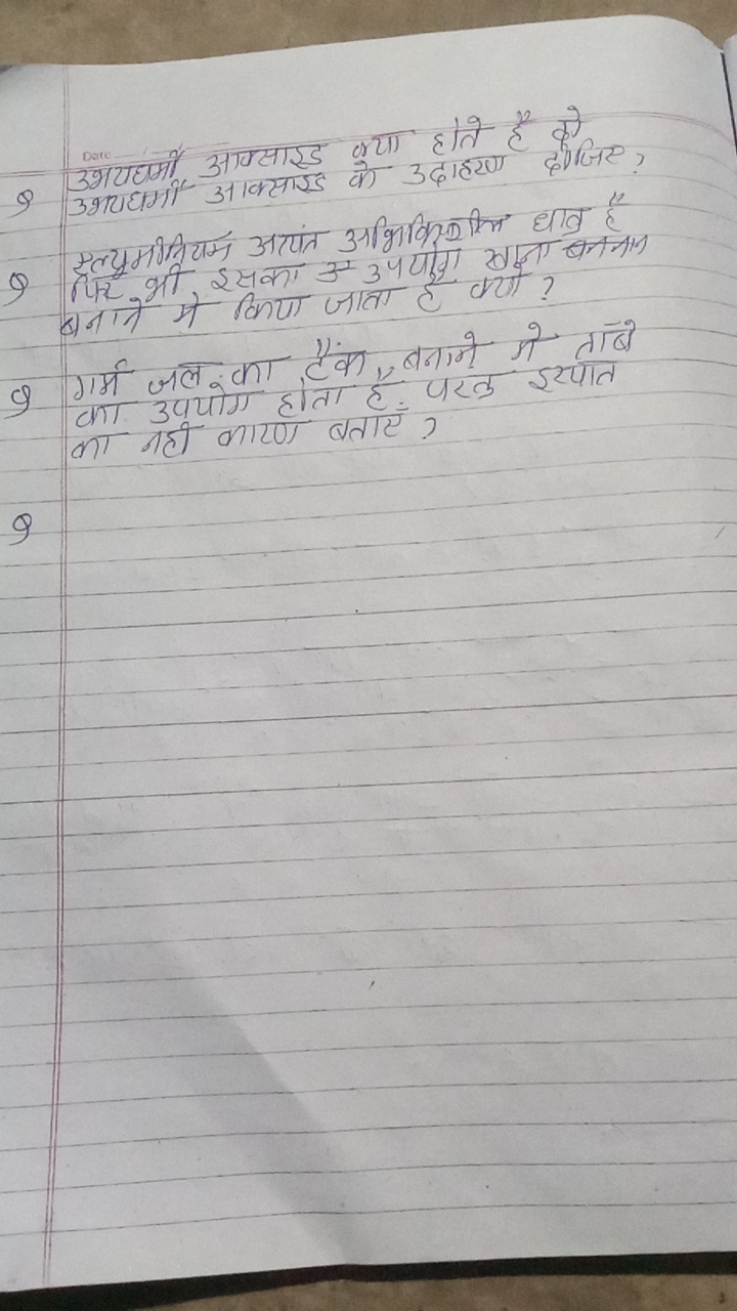 Date
Q उभयधर्मी आक्साइड क्या होते है दो
उभयधर्मी आक्साइड के उदाहरण दीजिए?
Q एल्युमीनियम अत्यंत अभिक्रियाशील धातु है
फिर भी इसका उपयोग खाना बनाने
बनाने मे किया जाता है क्यों?
Q गर्म जल का टैंक बनाने मे ताँबे
का उपयोग होता है. परन्तु इस्पात
का नहीं कारण बताएँ?
Q